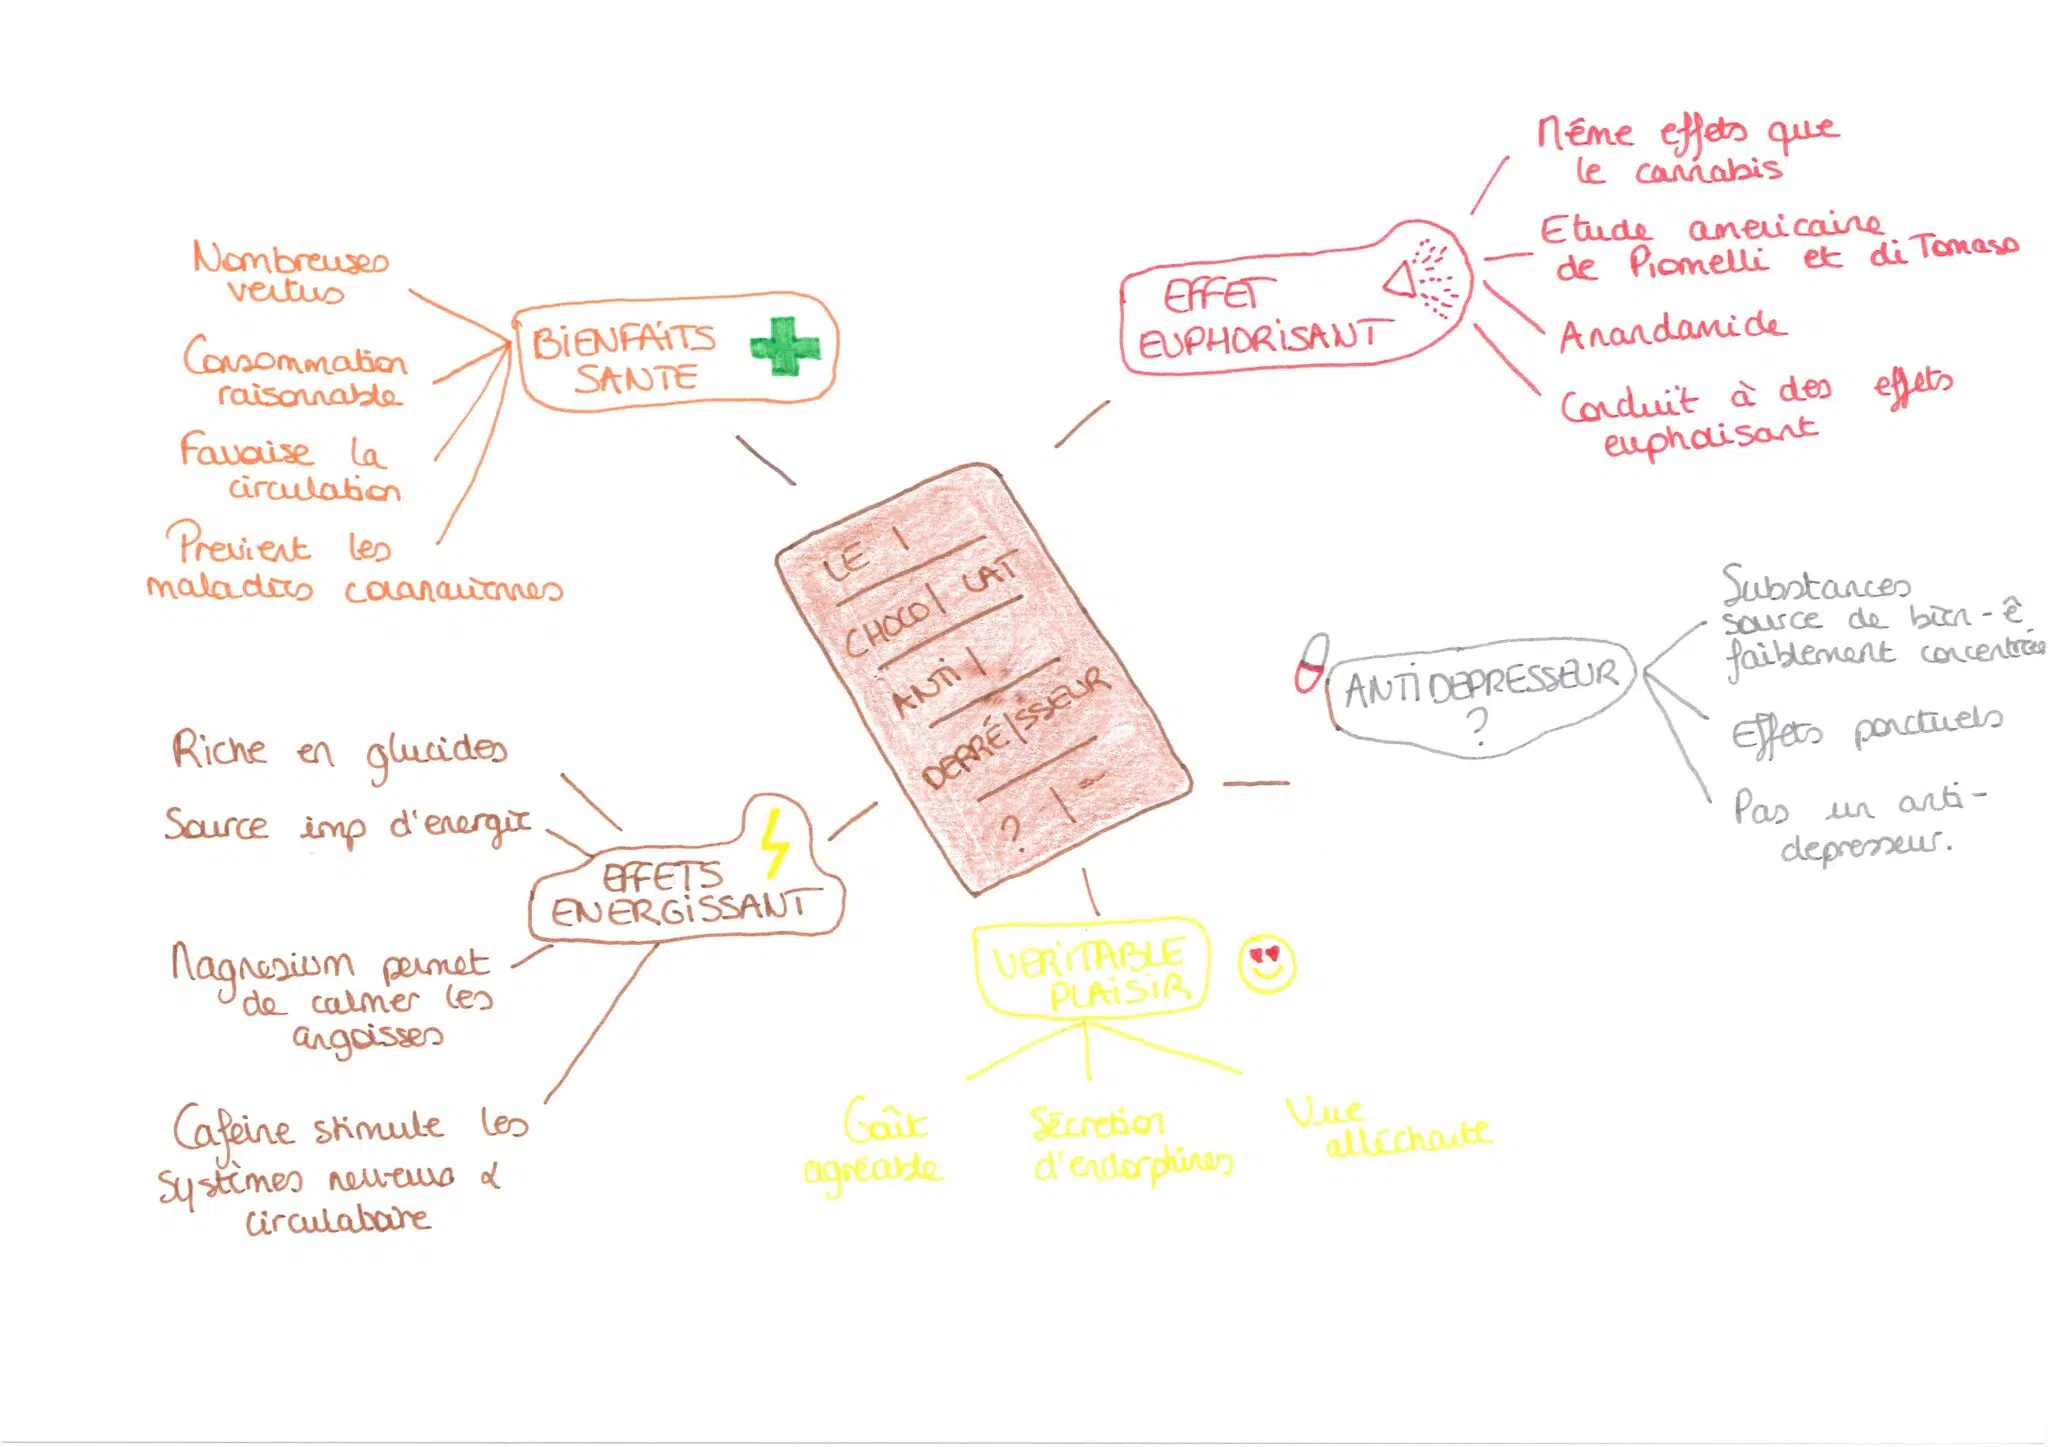 LE
CHOCOLAT
ANTI
DEPRÉSSEUR
?
BIENFAITS
SANTE
Nombreuses
vertus
Consommation
raisonnable
Favorise la
circulation
Previent les
maladies coronariennes
EFFET
EUPHORISANT
Même effets que
le cannabis
Etude americaine
de Piomelli et di Tomaso
Anandamide
Conduit à des effets
euphorisant
ANTIDEPRESSEUR
?
Substances
source de bien-ê
faiblement concentrée
Effets ponctuels
Pas un anti-
depresseur.
VERITABLE
PLAISIR
Goût
agréable
Sécretion
d'endorphines
Vue
alléchante
EFFETS
ENERGISSANT
Riche en glucides
Source imp d'energie
Magnesium permet
de calmer les
angoisses
Cafeine stimule les
systèmes nerveux &
circulatoire